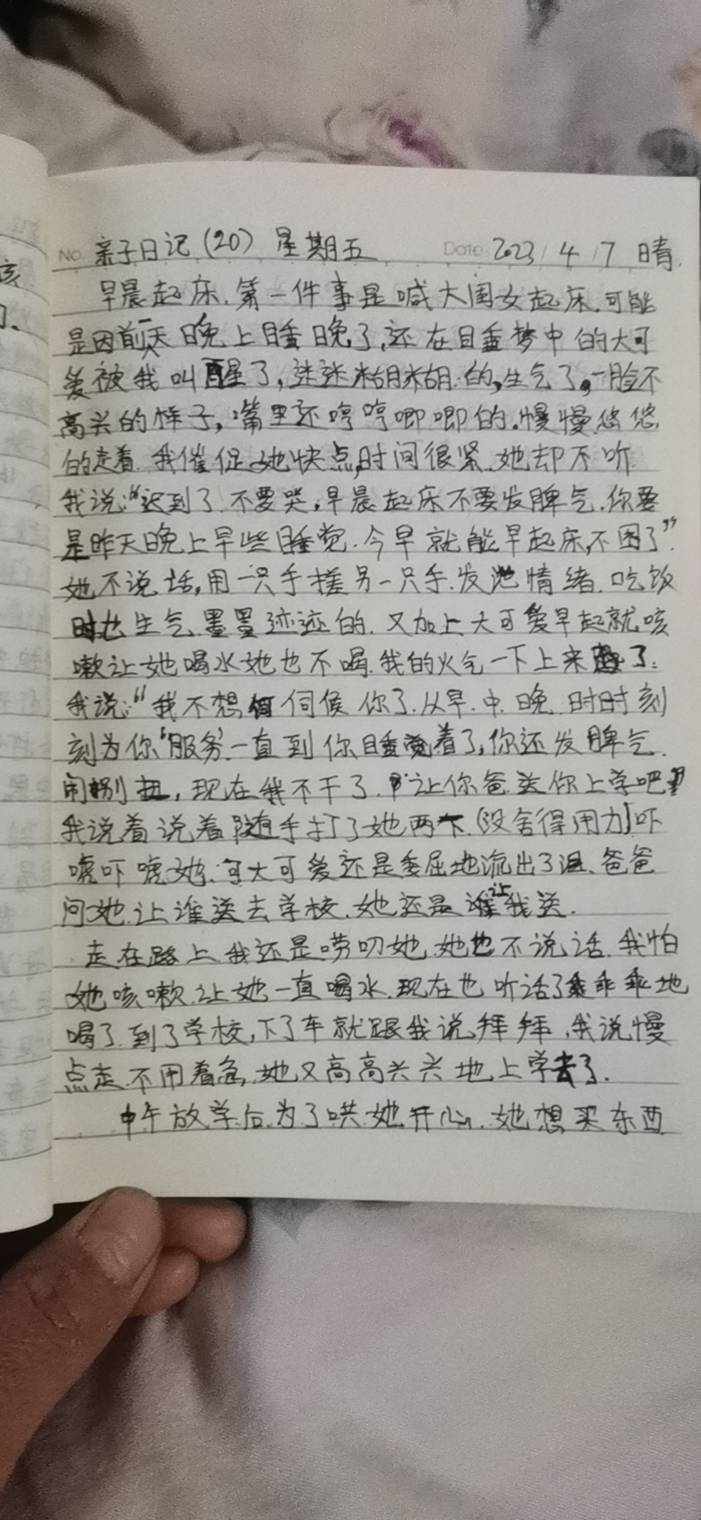 No. 亲子日记(20) 星期五 Date 2023 4 7 晴.
早晨起床.第一件事是喊大闺女起床.可能
是因前天晚上睡晚了,还在睡梦中的大可
爱被我叫醒了,迷迷糊糊的,生气了,一脸不
高兴的样子,嘴里还哼哼唧唧的.慢慢悠悠
的走着.我催促她快点,时间很紧.她却不听.
我说:“迟到了.不要哭,早晨起床不要发脾气.你要
是昨天晚上早些睡觉.今早就能早起床,不困了”.
她不说话,用一只手搓另一只手.发泄情绪.吃饭
时也生气.墨墨迹迹的.又加上大可爱早起就咳
嗽让她喝水她也不喝.我的火气一下上来了:
我说:“我不想伺候你了.从早.中.晚.时时刻
刻为你‘服务’一直到你睡着了,你还发脾气.
闹别扭,现在我不干了.让你爸送你上学吧”
我说着说着随手打了她两下.(没舍得用力)吓
唬吓唬她.可大可爱还是委屈地流出了泪.爸爸
问她.让谁送去学校.她还是让我送.
走在路上.我还是唠叨她.她也不说话.我怕
她咳嗽.让她一直喝水.现在也听话了乖乖地
喝了.到了学校,下了车就跟我说拜拜,我说慢
点走.不用着急,她又高高兴兴地上学去了.
中午放学后.为了哄她开心.她想买东西